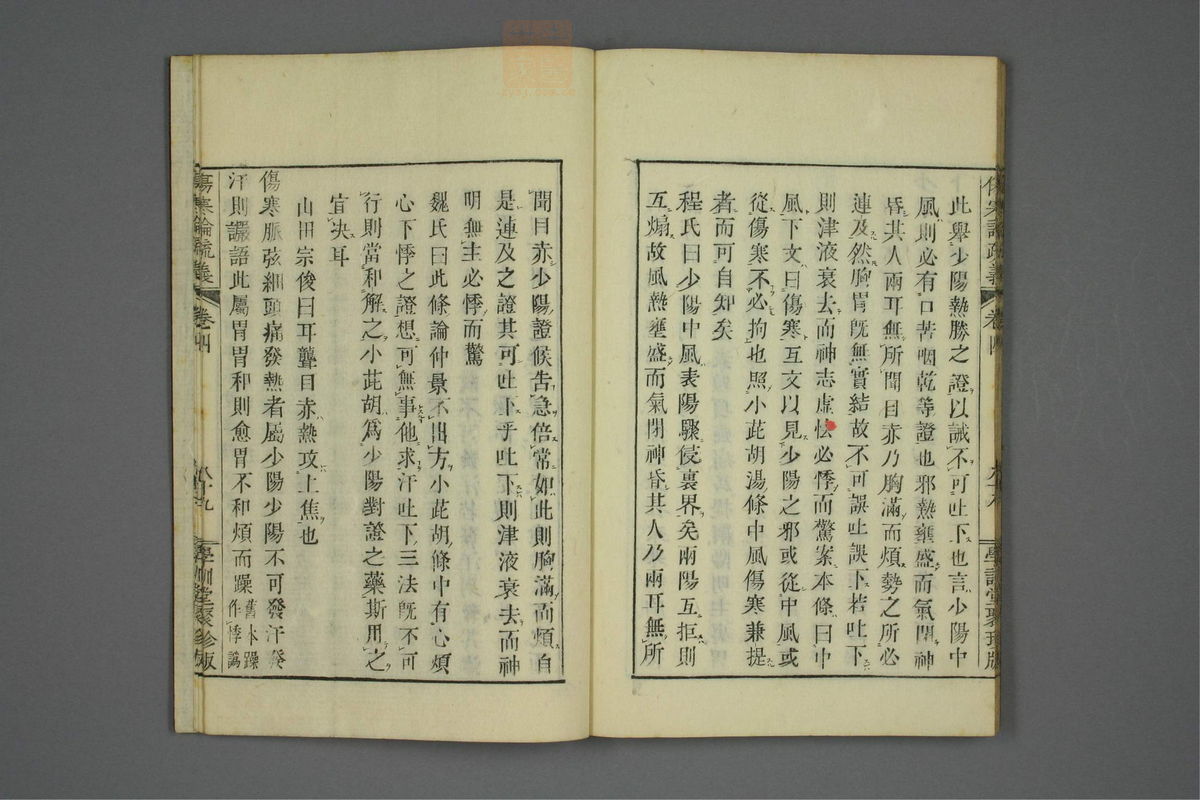 此舉少陽熱勝之證以誡不可吐下也言少陽中
風則必有口苦咽乾等證也邪熱壅盛而氣閉神
昏其人兩耳無所聞目赤乃胸滿而煩勢之所必
連及然胸胃既無實結故不可誤吐誤下若吐下
則津液衰去而神志虛怯必悸而驚案本條曰中
風下文曰傷寒互文以見少陽之邪或從中風或
從傷寒不必拘也照小茈胡湯條中風傷寒兼提
者而可自知矣
程氏曰少陽中風表陽驟侵裏界矣兩陽互拒則
互煽故風熱壅盛而氣閉神昏其人乃兩耳無所
聞目赤少陽證候告急倍常如此則胸滿而煩自
是連及之證其可吐下乎吐下則津液衰去而神
明無主必悸而驚
魏氏曰此條論仲景不出方小茈胡條中有心煩
心下悸之證想可無事他求汗吐下三法既不可
行則當和解之小茈胡為少陽對證之藥斯用之
宜決耳
山田宗俊曰耳聾目赤熱攻上焦也
傷寒脈弦細頭痛發熱者屬少陽少陽不可發汗發
汗則讝語此屬胃胃和則愈胃不和煩而躁舊本躁
作悸譌
傷寒論疏義
卷四
學訓堂聚珍版